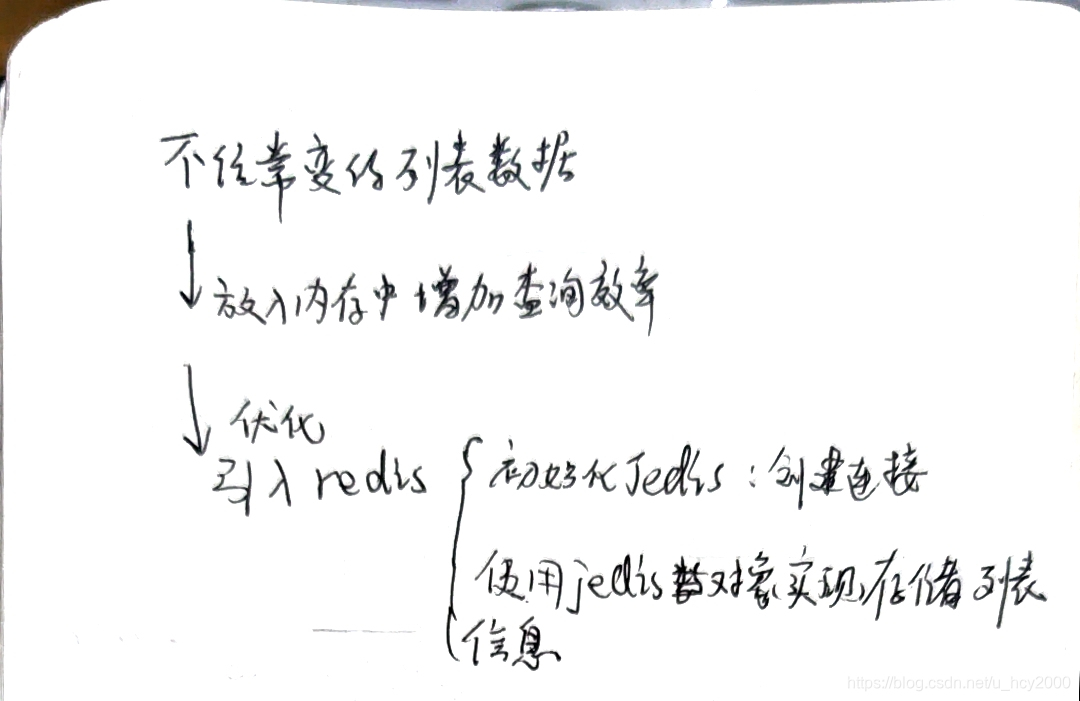 不经常变的列表数据
放入内存中增加查询效率
优化
引入redis
初始化Jedis：创建连接
使用jedis对象实现存储列表
信息
https://blog.csdn.net/u_hcy2000